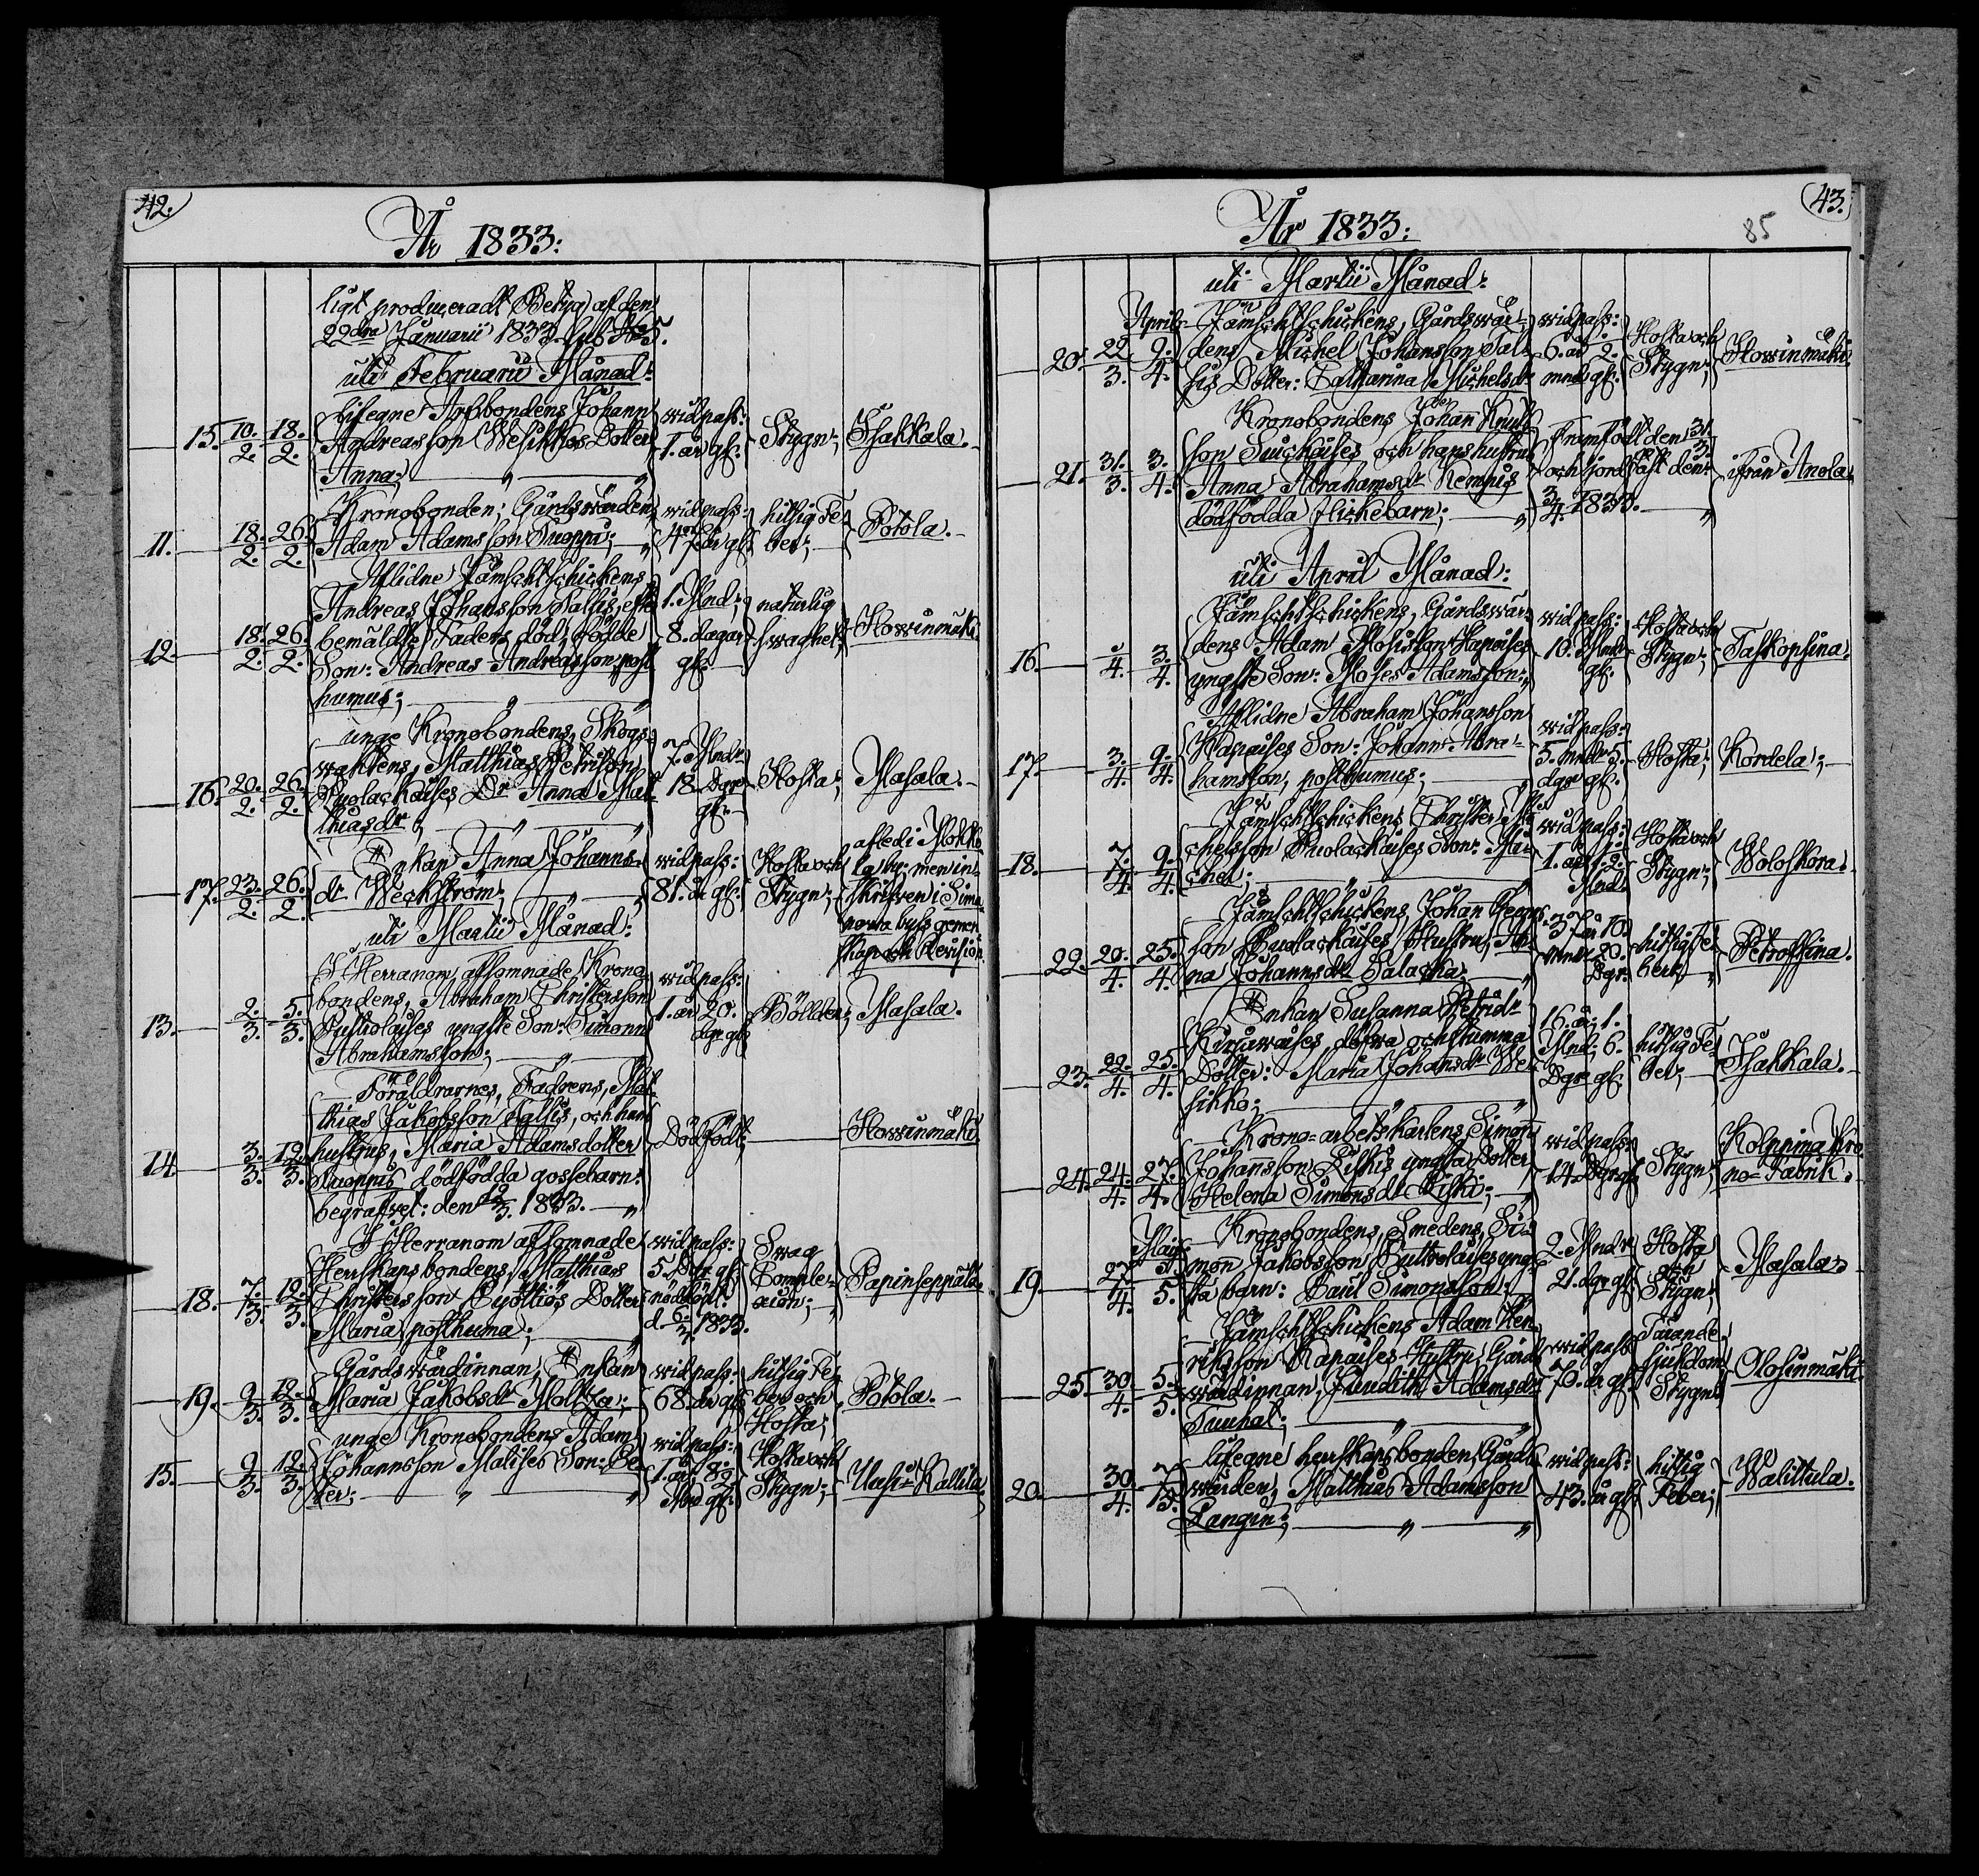 42.
År 1833:
ligt produceradt Betyg af den
22dra Januarii 1833. sub No 5.
uti Februarii Månad:
15. 10./2. 18./2. Lifegne Arfbondens Johann
Andreasson Wesikkos Dotter
Anna; widpass: 1. år gl: Stygn; Tsakkala.
11. 18./2. 26./2. Kronobonden; Gårdswärden,
Adam Adamsson Suoppu; widpass: 47. år gl: hitsig Feber; Potola.
12. 18./2. 26./2. Aflidne Jämschtschickens
Andreas Johansson Tallus, efter
bemälte Fadens död, födde
Son: Andreas Andreasson, post-
humus; 1. Mnd; 8. dagar gl: naturlig swaghet; Howinmäki
16. 20./2. 26./2. unge Kronobondens, Skogs-
waktens, Matthias Petrisson
Puolackaises Dr Anna Mat-
thiasdr; 7. Mndr 18. Dgr gl: Hosta; Masala.
17. 23./2. 26./2. Enkan Anna Johanns-
dr Weckström; widpass: 81. år gl: Hosta och Stygn; afled i Mokko-
la by: men in-
skrifwen i Sima-
nowa byss gemen-
skap och Revision.
uti Martii Månad:
13. 2./3. 5./3. I Herranom afsomnade, Krono-
bondens, Abraham Christersson
Puttolaises yngste Son: Simonn
Abrahamsson; widpass: 1. år 20. dgr gl: Bölder; Masala.
14. 3./3. 12./3. Föräldrarnes, Fadrens, Mat-
thias Jakobsson Tallus, och hans
hustrus, Maria Adamsdotter
Suoppus dödfödda gossebarn:
begrafvet: den 12/3. 1833. Dödfödt; Howinmäki
18. 7./3. 12./3. I Herranom afsomnade
Herrskapsbondens, Matthias
Christersson Pyöttiös Dotter
Maria, posthuma; widpass: 5. Dgr gl: nöddöpt: d. 1833. Swag Complexion; Papinseppälä
19. 9./3. 12./3. Gårdswärdinnan, Enkan
Maria Jakobsdr Maltza; widpass: 68. år gl: hitsig Feber och Hosta; Potola.
15. 9./3. 12./3. unge Kronobondens Adam
Johannsson Malises Son: Pe-
ter; widpass: 1. år Mnd gl: Hosta och Stygn; Uusi-Kallila
43.
85
År 1833:
uti Martii Månad:
20. 22./3. April 9./4. Jämschtschickens, Gårdswär-
dens Michel Johansson Tal-
lus Dotter: Catharina Michelsdr widpass: 6. år 2. mndr gl: Hosta och Stygn; Howinmäki
21. 31./3. 3./4. Kronobondens Johann Knut-
son Suickaises och hans hustrus
Anna Abrahamsdr Kempis
dödfödda flickebarn; Framfödt den 31/3.
och jordfäst den:
3/4. 1833. ifrån Anola
uti April Månad:
16. /4. 3./4. Jämschtschickens, Gårdswär-
dens Adam Mosisson Hapoises
yngste Son: Moses Adamsson; widpass: 10. Mndr gl: Hosta och Stygn; Taskopsina.
17. 3./4. 9./4. Aflidne Abraham Johansson
Kapaises Son: Johann Abra-
hamsson, posthumus; widpass: 5. mndr 5. dgr gl: Hosta; Kordela;
18. 7./4. 9./4. Jämschtschickens Christer Mi-
chelsson Puolackaises Son: Mi-
chel; widpass: 1. år 1. 2. Mnd: Hosta och Stygn; Woloskora.
22. 20./4. 25./4. Jämschtschickens, Johan Georgs-
son Puolackaises Hustru, An-
na Johannsdr Salacka; 37. år 10. mndr 20. Dgr. hitsig Feber; Petroffsina.
23. 22./4. 25./4. Enkan Susanna Petridr
Kirjawaises döfwa och stumma
Dotter: Maria Johansdr We-
sikko; 16. år; 1. Mnd; 6. Dgr gl: hitsig Feber; Tsakkala.
24. 24./4. 27./4. Krono-arbetskarlens, Simon
Johansson Piskis yngsta Dotter
Helena Simonsdr Piski; widpass: 14. Dgr gl: Stygn; Kolppina Kro-
no-Fabrik.
19. 27./4. Maji 5. Kronobondens, Smedens, Si-
mon Jakobsson Puttolaises yng-
sta barn: Paul Simonsson; 2. Mndr 21. dgr gl: Hosta och Stygn; Masala;
25. 30./4. 5./5. Jämschtschickens Adam Hen-
riksson Kapaises Hustru, Gård-
wärdinnan, Juudith Adamsdr
Tuuhal; widpass: 70. år gl: Tärande sjukdom Stygn; Olosinmäki.
20. 30./4. 7./5. lifegne herrskapsbonden, Gårds-
wärden, Matthias Adamsson
Pangin; widpass: 43. år gl: hitsig Feber; Walittula.